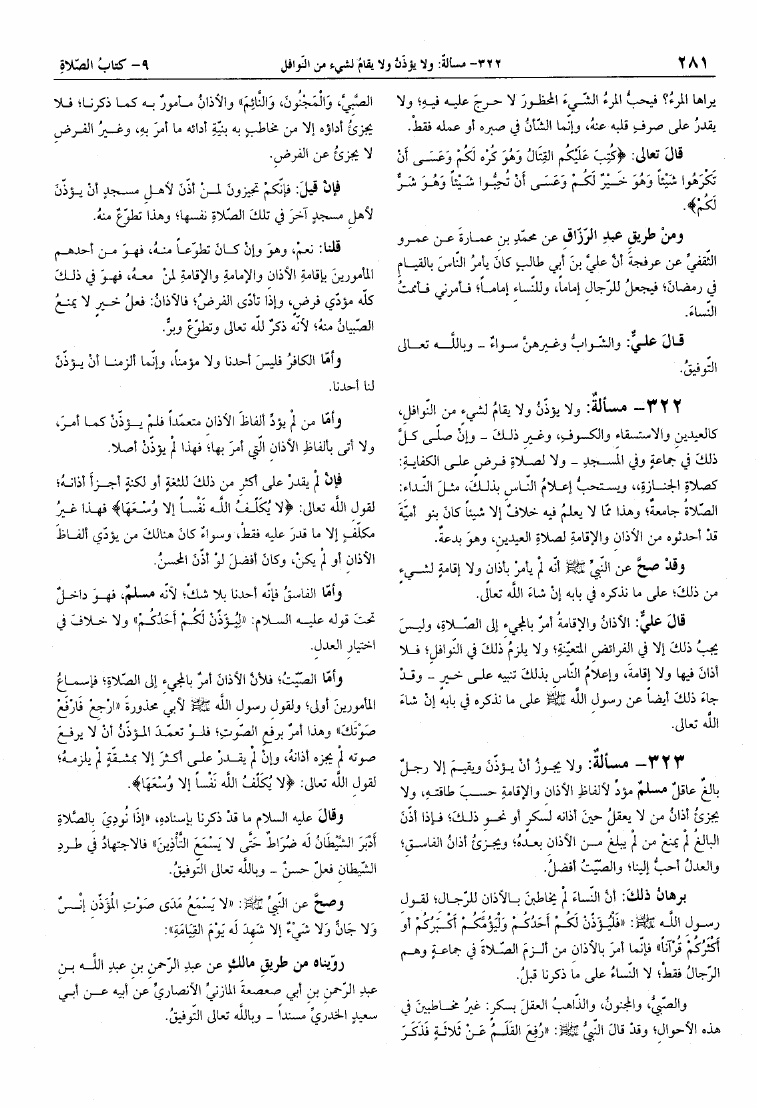 ٢٨١
٣٢٢- مسألةٌ: ولا يؤذّنُ ولا يقامُ لشيء من النّوافل
٩- كتابُ الصّلاةِ
يراها المرءُ؟ فيحبُّ المرءُ الشّيءَ المحظورَ لا حرجَ عليه فيهِ؛ ولا
يقدرُ على صرفِ قلبه عنهُ، وإنّما الشّأنُ في صبره أو عمله فقطْ.
قال تعالى: ﴿كُتِبَ عَلَيْكُم القِتَالُ وَهُوَ كُرْه لَكُمْ وَعَسَى أَنْ
تَكْرَهُوا شَيْئاً وَهُوَ خَيْرٌ لَكُمْ وَعَسَى أَنْ تُحِبُّوا شَيْئاً وَهُوَ شَرٌّ
لَكُمْ﴾.
ومنْ طريقِ عبدِ الرّزّاق عن محمّدِ بنِ عمارةَ عن عمرو
الثّقفيِّ عن عرفجةَ أنَّ عليَّ بنَ أبي طالبٍ كانَ يأمرُ النّاسَ بالقيامِ
في رمضانَ؛ فيجعلُ للرّجالِ إماماً، وللنّساءِ إماماً؛ فأمرني فأممتُ
النّساءَ.
قالَ عليٌّ: والشّوابُّ وغيرهنَّ سواءٌ – وباللَّه تعالى
التّوفيقُ.
٣٢٢- مسألةٌ: ولا يؤذّنُ ولا يقامُ لشيءٍ من النّوافلِ،
كالعيدينِ والاستسقاء والكسوفِ، وغيرِ ذلكَ – وإنْ صلّى كلَّ
ذلكَ في جماعةٍ وفي المسجدِ – ولا لصلاةِ فرضٍ على الكفايةِ:
كصلاةِ الجنازةِ،، ويستحبُّ إعلامُ النّاس بذلكَ، مثلَ النّداء:
الصّلاةَ جامعةٌ؛ وهذا ممّا لا يعلمُ فيه خلافٌ إلا شيئاً كانَ بنو أميّةَ
قدْ أحدثوه من الأذانِ والإقامةِ لصلاةِ العيدينِ، وهوَ بدعةٌ.
وقدْ صحَّ عن النّبيِّ ﷺ أنّه لم يأمرْ بأذان ولا إقامةٍ لشيءٍ
من ذلكَ؛ على ما نذكره في بابه إنْ شاءَ اللَّه تعالى.
قالَ عليٌّ: الأذانُ والإقامةُ أمرٌ بالمجيءِ إلى الصّلاةِ، وليسَ
يجبُ ذلكَ إلا في الفرائضِ المتعيّنةِ؛ ولا يلزمُ ذلكَ في النّوافلِ؛ فلا
أذانَ فيها ولا إقامةَ، وإعلامُ النّاسِ بذلكَ تنبيه على خيرٍ – وقدْ
جاءَ ذلكَ أيضاً عن رسولِ اللَّه ﷺ على ما نذكره في بابه إنْ شاءَ
اللَّه تعالى.
٣٢٣- مسألةٌ: ولا يجوزُ أنْ يؤذّنَ ويقيمَ إلا رجلٌ
بالغٌ عاقلٌ مسلمٌ مؤدٍّ لألفاظِ الأذان والإقامةِ حسبَ طاقتهِ، ولا
يجزئُ أذانُ من لا يعقلُ حينَ أذانه لسكرٍ أو نحوِ ذلكَ؛ فإذا أذّنَ
البالغُ لم يمنعْ من لم يبلغْ من الأذان بعدهُ؛ ويجزئُ أذانُ الفاسقِ؛
والعدلُ أحبُّ إلينا؛ والصّيّتُ أفضلُ.
برهانُ ذلكَ: أنَّ النّساءَ لم يخاطبنَ بالأذان للرّجالِ؛ لقول
رسول اللَّه ﷺ: «فَلْيُؤَذِّنْ لَكُمْ أَحَدُكُمْ وَلْيَؤُمَّكُمْ أَكْبَرُكُمْ أَو
أَكْثَرُكُمْ قُرْآناً» فإنّما أمرَ بالأذان من ألزمَ الصّلاةَ في جماعةٍ وهم
الرّجالُ فقطْ؛ لا النّساءُ على ما ذكرنا قبلُ.
والصّبيُّ، والمجنونُ، والذّاهبُ العقلَ بسكرٍ: غيرُ مخاطبينَ في
هذه الأحوالِ؛ وقدْ قالَ النّبيُّ ﷺ: «رُفِعَ القَلَمُ عَنْ ثَلَاثَةٍ فَذَكَرَ
الصَّبِيَّ، وَالْمَجْنُونَ، وَالنَّائِمَ» والأذانُ مأمورٌ به كما ذكرنا؛ فلا
يجزئُ أداؤه إلا من مخاطبٍ به بنيّةِ أدائه ما أمرَ بهِ، وغيرُ الفرضِ
لا يجزئُ عن الفرضِ.
فإنْ قيلَ: فإنّكمْ تجيزونَ لمنْ أذّنَ لأهلِ مسجدٍ أنْ يؤذّنَ
لأهلِ مسجدٍ آخرَ في تلكَ الصّلاةِ نفسها؛ وهذا تطوّعٌ منهُ.
قلنا: نعمْ، وهوَ وإنْ كانَ تطوّعاً منهُ، فهوَ من أحدهم
المأمورينَ بإقامةِ الأذان والإمامةِ والإقامةِ لمنْ معهُ، فهوَ في ذلكَ
كلّه مؤدّي فرضٍ، وإذا تأدّى الفرضُ؛ فالأذانُ: فعلُ خيرٍ لا يمنعُ
الصّبيانُ منهُ؛ لأنّه ذكرٌ للّه تعالى وتطوّعٌ وبرٌّ.
وأمّا الكافرُ فليسَ أحدنا ولا مؤمناً، وإنّما ألزمنا أنْ يؤذّنَ
لنا أحدنا.
وأمّا من لم يؤدِّ ألفاظَ الأذانِ متعمّداً فلمْ يؤذّنْ كما أمرَ،
ولا أتى بألفاظِ الأذانِ الّتي أمرَ بها؛ فهذا لم يؤذّنْ أصلا.
فإنْ لم يقدرْ على أكثرَ من ذلكَ للثغةٍ أو لكنةٍ أجزأَ أذانهُ؛
لقول اللَّه تعالى: ﴿لا يُكَلِّفُ اللَّه نَفْساً إلا وُسْعَهَا﴾ فهذا غيرُ
مكلّفٍ إلا ما قدرَ عليه فقطْ، وسواءٌ كانَ هنالكَ من يؤدّي ألفاظَ
الأذان أو لم يكنْ، وكانَ أفضلَ لوْ أذّنَ المحسنُ.
وأمّا الفاسقُ فإنّه أحدنا بلا شكٍّ؛ لأنّه مسلمٌ، فهوَ داخلٌ
تحتَ قوله عليه السلام: «لِيُؤَذِّنْ لَكُمْ أَحَدُكُمْ» ولا خلافَ في
اختيارِ العدلِ.
وأمّا الصّيّتُ؛ فلأنَّ الأذانَ أمرٌ بالمجيءِ إلى الصّلاةِ؛ فإسماعُ
المأمورينَ أولى؛ ولقول رسول اللَّه ﷺ لأبي محذورةَ «ارْجِعْ فَارْفَعْ
صَوْتَكَ» وهذا أمرٌ برفعِ الصّوتِ؛ فلوْ تعمّدَ المؤذّنُ أنْ لا يرفعَ
صوته لم يجزه أذانهُ، وإنْ لم يقدرْ على أكثرَ إلا بمشقّةٍ لم يلزمهُ؛
لقول اللَّه تعالى: ﴿لا يُكَلِّفُ اللَّه نَفْساً إلا وُسْعَهَا﴾.
وقالَ عليه السلام ما قدْ ذكرنا بإسنادهِ، «إذَا نُودِيَ بالصَّلاةِ
أَدْبَرَ الشَّيْطَانُ لَه ضُرَاطٌ حَتَّى لا يَسْمَعَ التَّأْذِينَ» فالاجتهادُ في طردِ
الشّيطان فعلٌ حسنٌ – وباللَّه تعالى التّوفيقُ.
وصحَّ عن النّبيِّ ﷺ: «لا يَسْمَعُ مَدَى صَوْتِ المُؤَذِّنِ إنْسٌ
وَلا جَانٌّ وَلا شَيْءٌ إلا شَهِدَ لَه يَوْمَ القِيَامَةِ»:
روّيناه من طريقِ مالكٍ عن عبدِ الرّحمنِ بنِ عبدِ اللَّه بنِ
عبدِ الرّحمنِ بنِ أبي صعصعةَ المازنيِّ الأنصاريِّ عن أبيه عن أبي
سعيدٍ الخدريِّ مسنداً – وباللَّه تعالى التّوفيقُ.